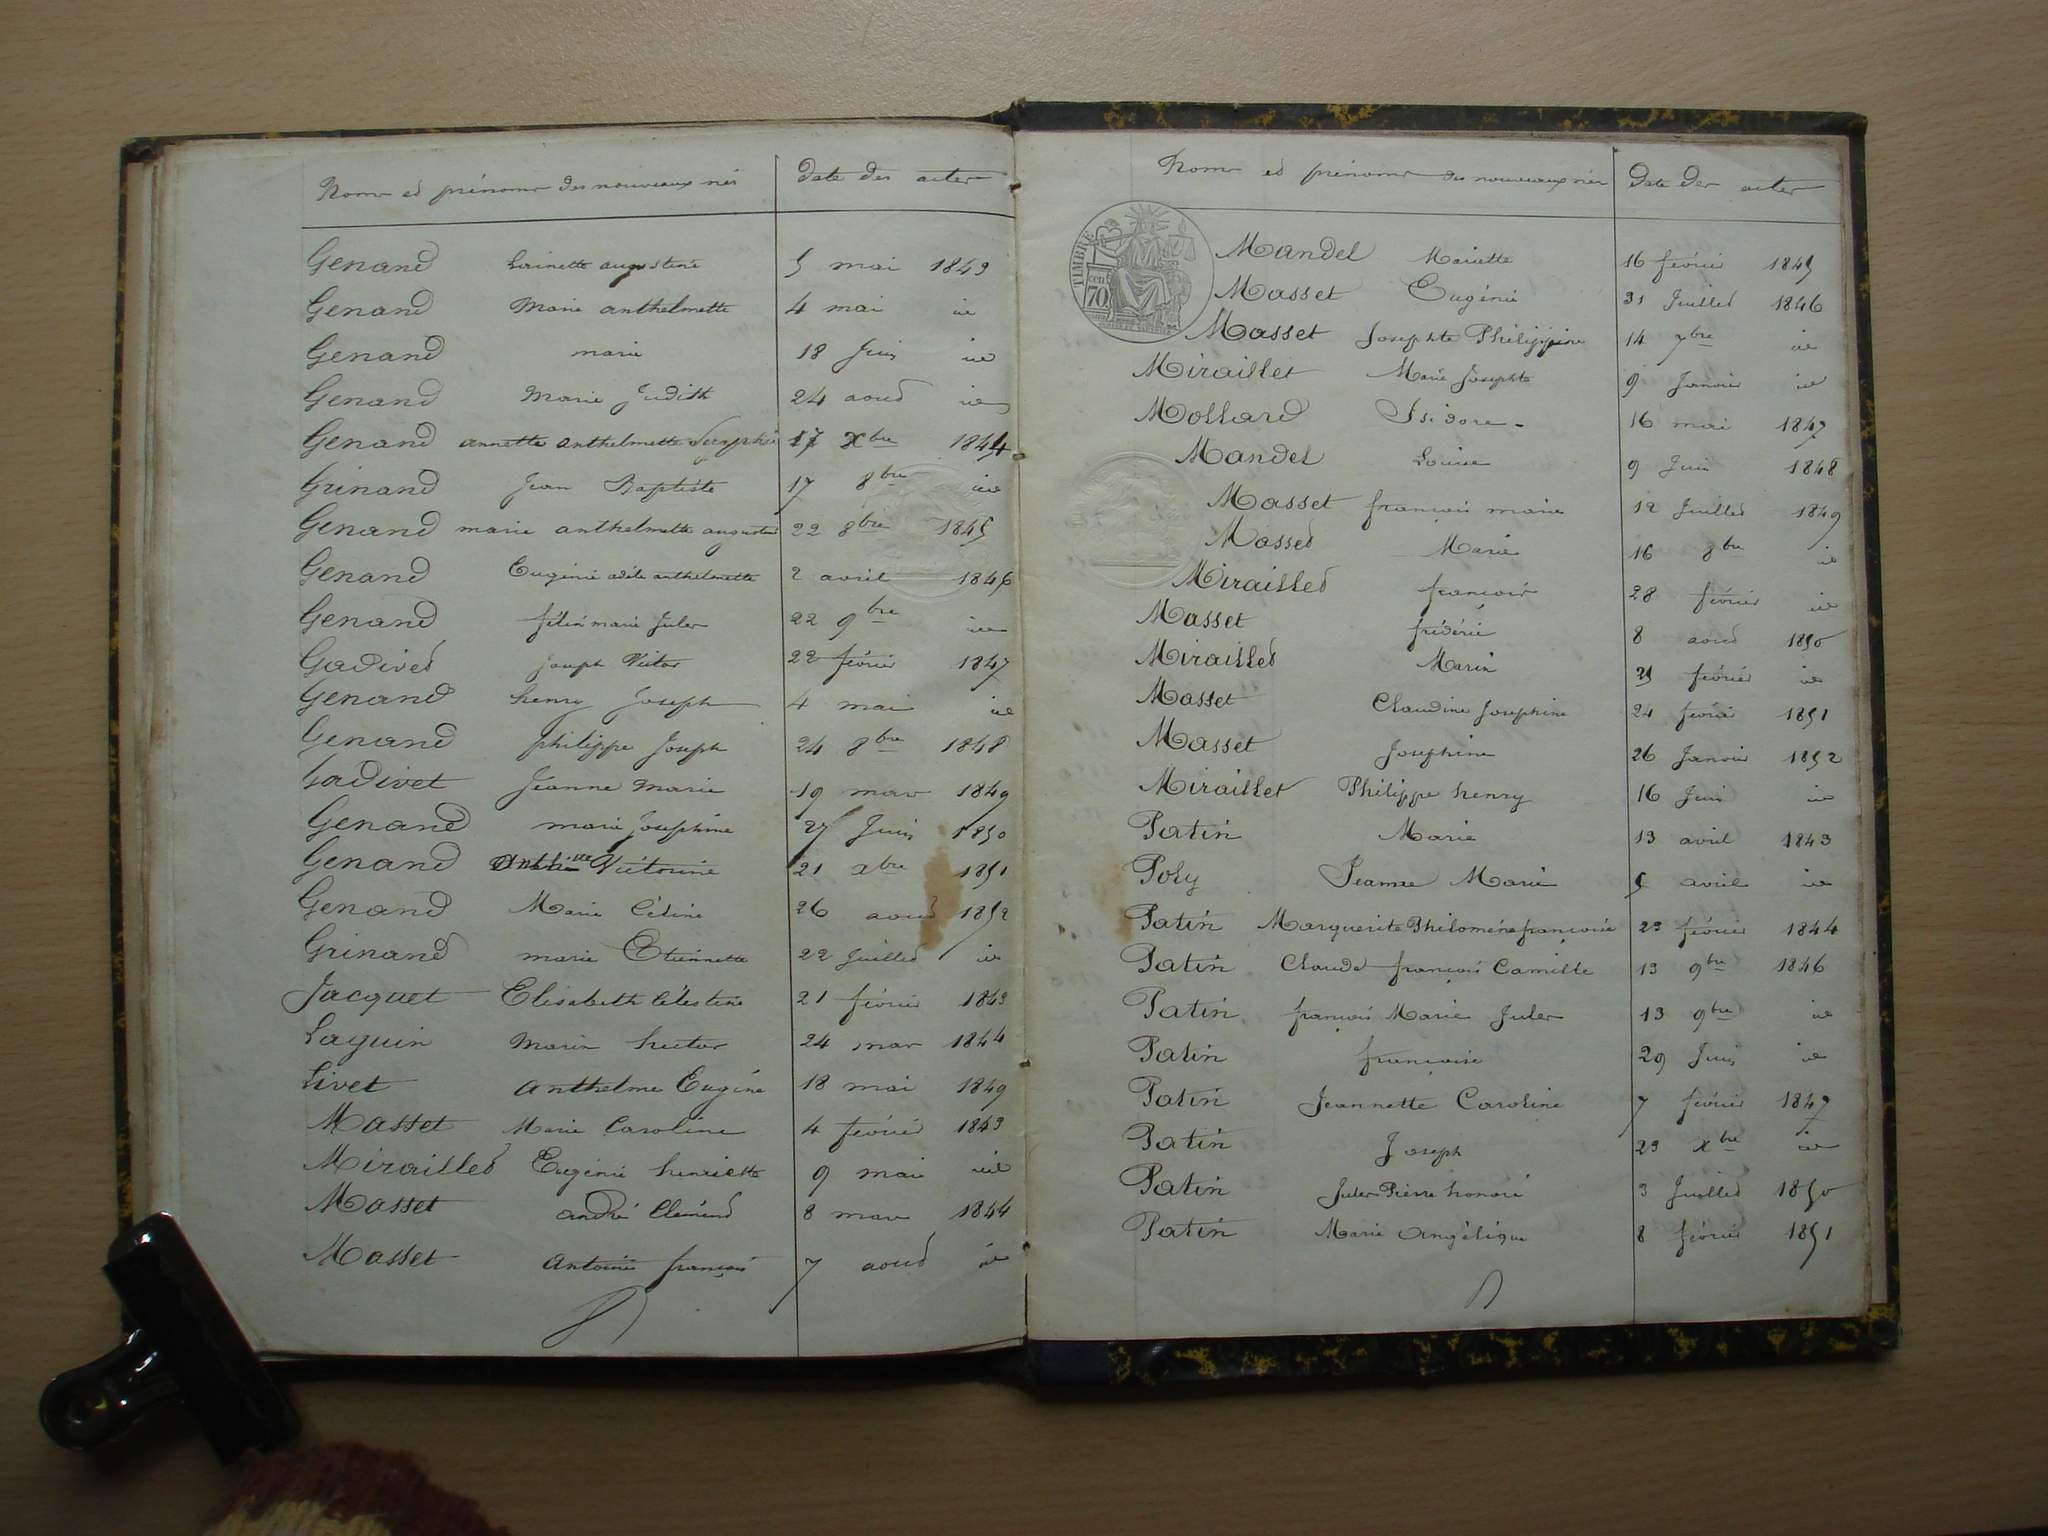 Noms et prénoms des nouveaux nés Date des actes
Genand Marie anthelmette 4 mai id
Genand marie 18 Juin id
Genand Marie Judith 24 aoud id
Genand annette anthelmette 17 Xbre 1844
Grinand Jean Baptiste 17 8bre id
Genand marie anthelmette 22 8bre 1845
Genand Eugénie adèle anthelmette 2 avril 1846
Genand félix marie Jules 22 9bre id
Gadived Joseph Victor 22 février 1847
Genand henry Joseph 4 mai id
Genand philippe Joseph 24 8bre 1848
Gadivet Jeanne Marie 19 mars 1849
Genand marie Josephine 27 Juin 1850
Genand Victorine 21 xbre 1851
Genand Marie Céline 26 aoud 1852
Grinand marie Etiennette 22 Juilled id
Jacquet Elisabeth Célestine 21 février 1843
Laquin Marin hector 24 mars 1844
Livet anthelme Eugène 18 mai 1849
Masset Marie Caroline 4 février 1843
Mirailled Eugénie henriette 9 mai id
Masset andré Clémend 8 mars 1844
Masset Antoine françois 7 aoud id
Noms et prénoms des nouveaux nés Date des actes
TIMBRE
70
Mandel Mariette 16 février 1845
Masset Eugénie 31 Juilled 1846
Masset Josephte Philippine 14 7bre id
Miraillet Marie Josephte 9 Janvier id
Mollard Isidore 16 mai 1847
Mandel Louise 9 Juin 1848
Masset françois marie 12 Juilled 1849
Massed Marie 16 8bre id
Mirailled françois 28 février id
Masset frédéric 8 aoud 1850
Mirailled Marin février id
Masset Claudine Josephine 24 février 1851
Masset Josephine 26 Janvier 1852
Miraillet Philippe henry 16 Juin id
Patin Marie 13 avril 1843
Poly Jeanne Marie 5 avril id
Patin Marguerite Philomène françoise 23 février 1844
Patin Claude françois Camille 13 9bre 1846
Patin françois Marie Jules 13 9bre id
Patin françoise 29 Juin id
Patin Jeannette Caroline 7 février 1847
Patin Joseph 23 Xbre id
Patin Jules Pierre honoré 3 Juilled 1850
Patin Marie Angélique 8 février 1851